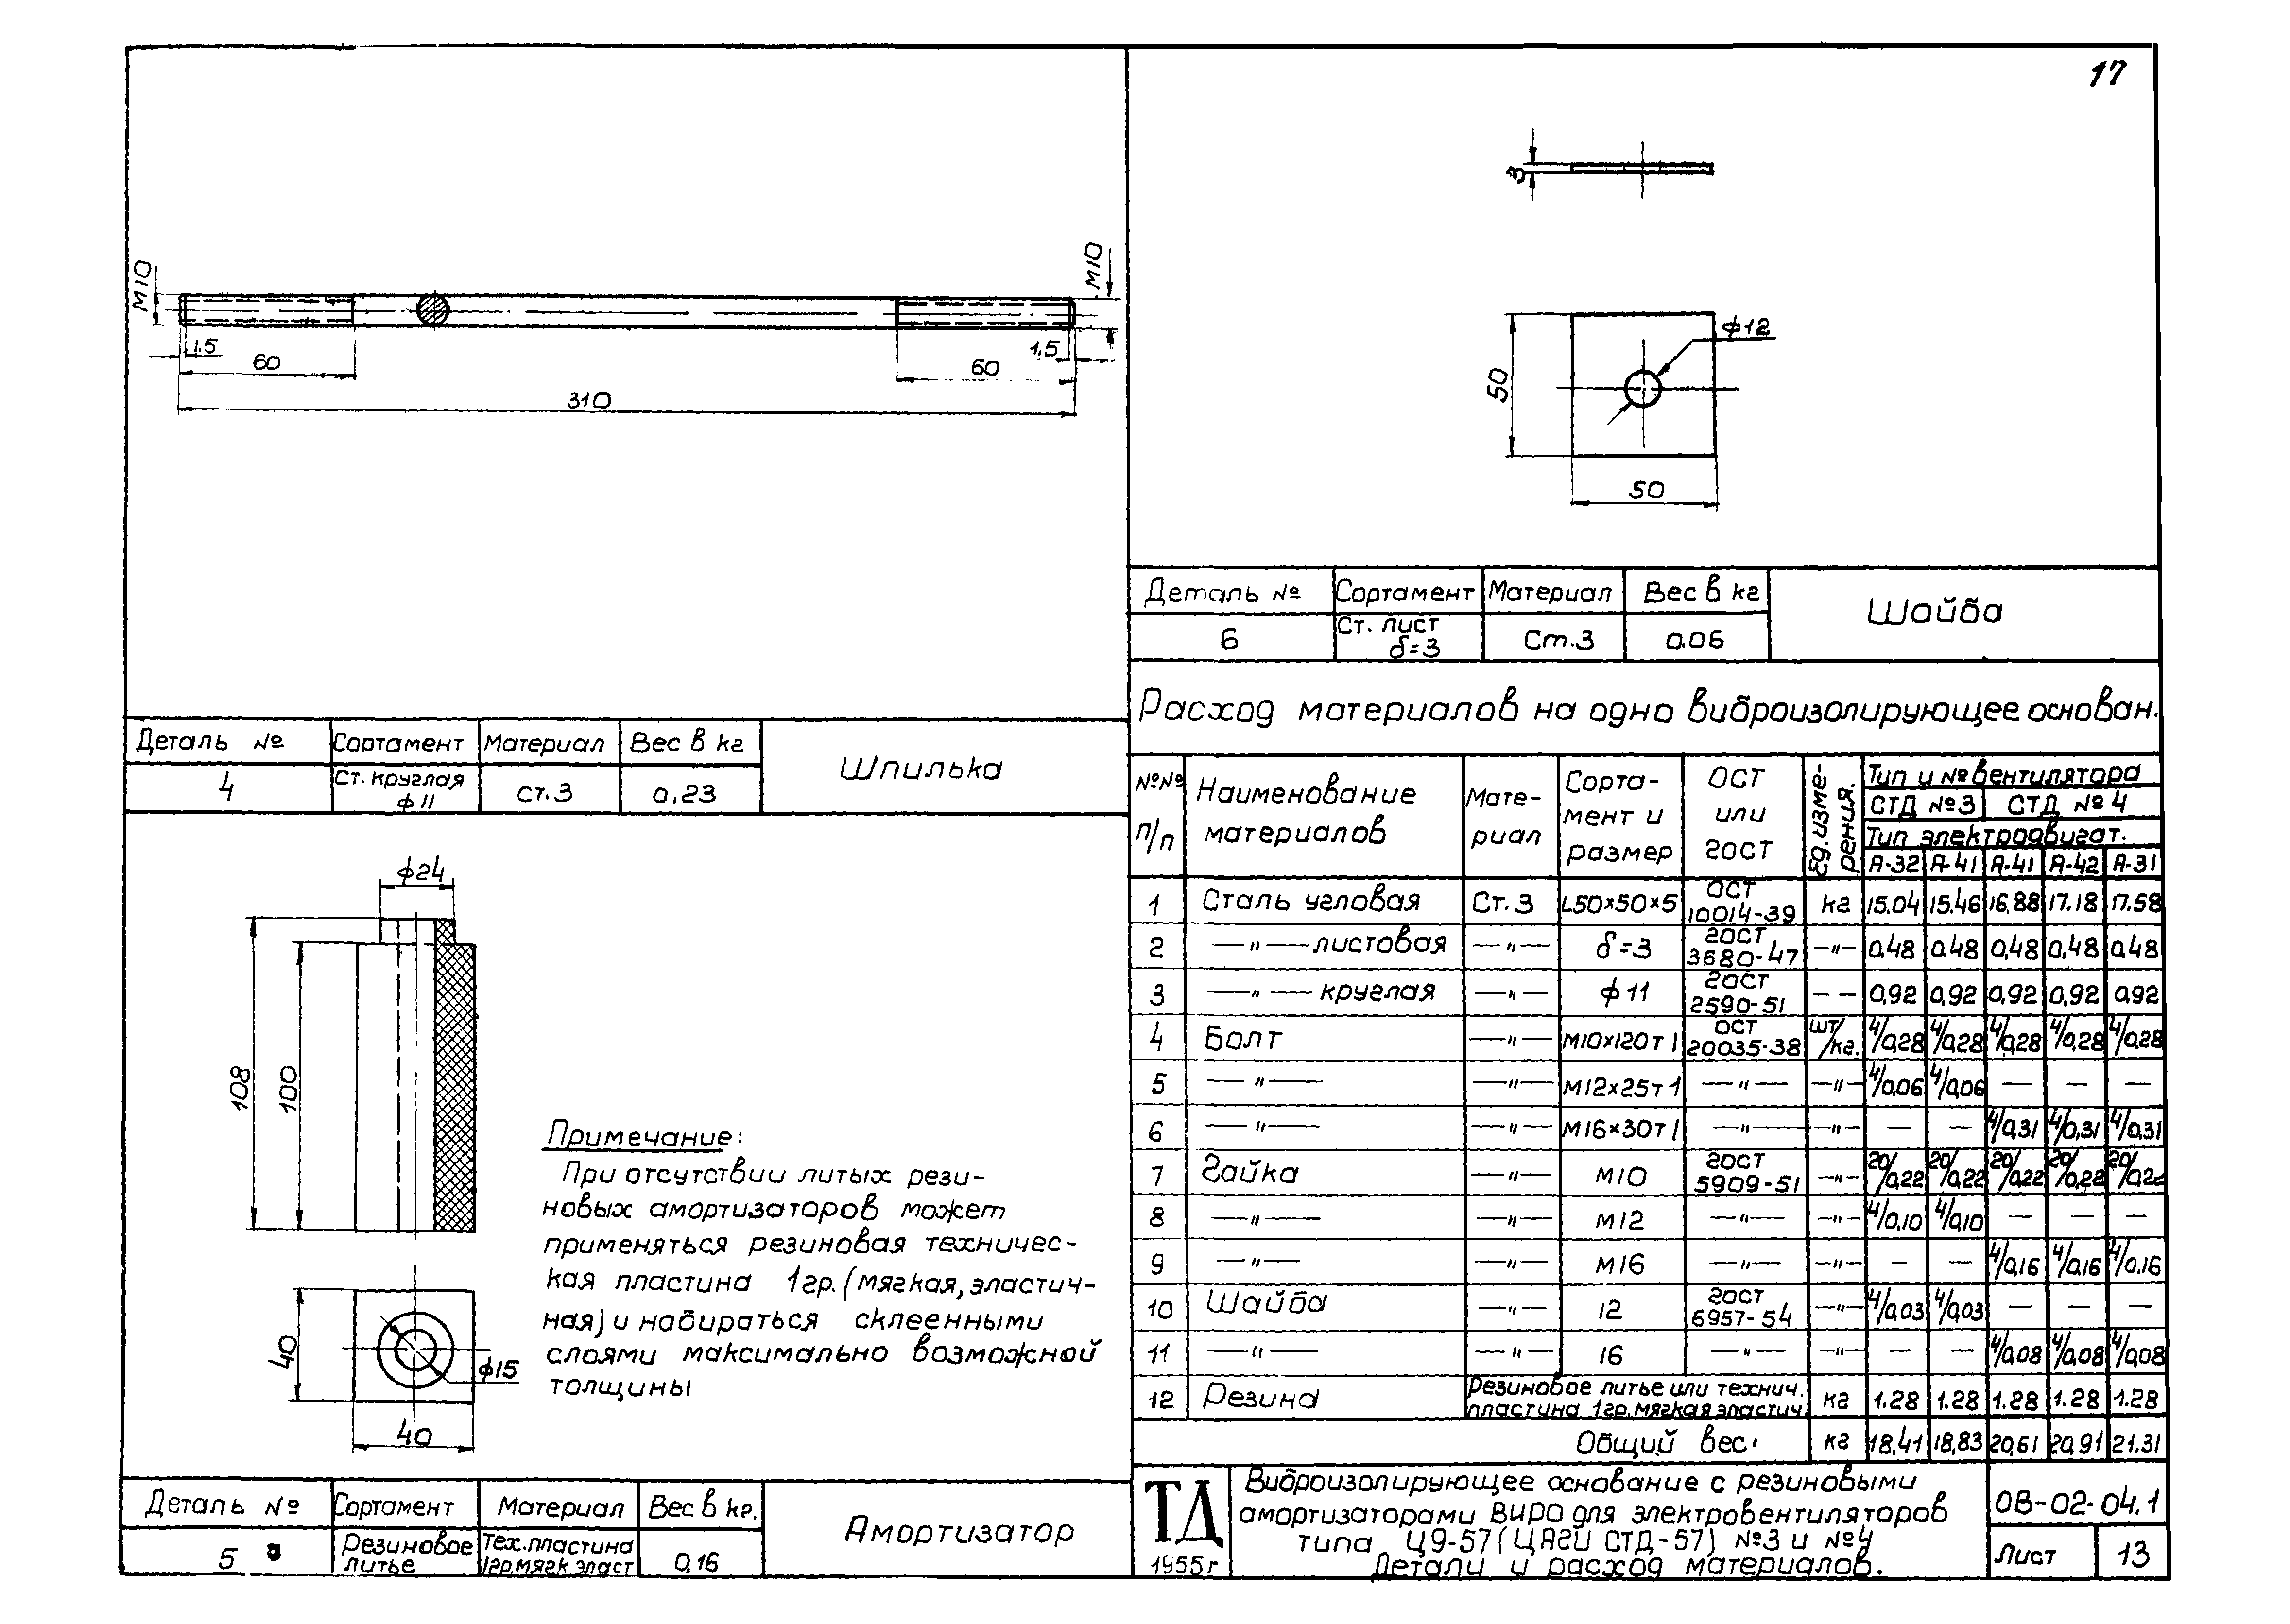 17
М10
М10
1.5
60
1,5
60
310
Деталь № Сортамент Материал Вес в кг Шпилька
4 Ст. круглая ф11 ст.3 0,23
ф24
108
100
40
40
ф15
Примечание:
При отсутствии литых рези-
новых амортизаторов может
применяться резиновая техничес-
кая пластина 1гр. (мягкая, эластич-
ная) и набираться склеенными
слоями максимально возможной
толщины
Деталь № Сортамент Материал Вес в кг. Амортизатор
5 Резиновое литье Тех. пластина 1гр. мягк. эласт 0,16
3
ф12
50
50
Деталь № Сортамент Материал Вес в кг Шайба
6 Ст. лист δ=3 Ст.3 0.06
Расход материалов на одно виброизолирующее основан.
№№ п/п Наименование материалов Мате-риал Сорта-мент и размер ОСТ или ГОСТ Ед. изме-рения. Тип и № вентилятора
СТД №3 СТД №4
Тип электродвигат.
А-32 А-41 А-41 А-42 А-31
1 Сталь угловая Ст.3 L50×50×5 ОСТ 10014-39 кг 15.04 15.46 16,88 17.18 17.58
2 —"— листовая —"— δ=3 ГОСТ 3680-47 —"— 0,48 0,48 0,48 0,48 0,48
3 —"— круглая —"— ф11 ГОСТ 2590-51 — — 0,92 0,92 0,92 0,92 0,92
4 Болт —"— М10×120т1 ОСТ 20035-38 шт/кг. 4/0,28 4/0,28 4/0,28 4/0,28 4/0,28
5 —"— —"— М12×25т1 —"— —"— 4/0,06 4/0,06 — — —
6 —"— —"— М16×30т1 —"— —"— — — 4/0,31 4/0,31 4/0,31
7 Гайка —"— М10 ГОСТ 5909-51 —"— 20/0,22 20/0,22 20/0,22 20/0,22 20/0,22
8 —"— —"— М12 —"— —"— 4/0,10 4/0,10 — — —
9 —"— —"— М16 —"— —"— — — 4/0,16 4/0.16 4/0.16
10 Шайба —"— 12 ГОСТ 6957-54 —"— 4/0,03 4/0,03 — — —
11 —"— —"— 16 —"— —"— — — 4/0,08 4/0,08 4/0,08
12 Резина Резиновое литье или технич. пластина 1гр. мягкая эластич. кг 1.28 1.28 1.28 1.28 1.28
Общий вес: кг 18,41 18,83 20,61 20,91 21.31
ТД
1955г
Виброизолирующее основание с резиновыми
амортизаторами ВИРО для электровентиляторов
типа Ц9-57 (ЦАГИ СТД-57) №3 и №4
Детали и расход материалов.
ОВ-02-04.1
Лист 13